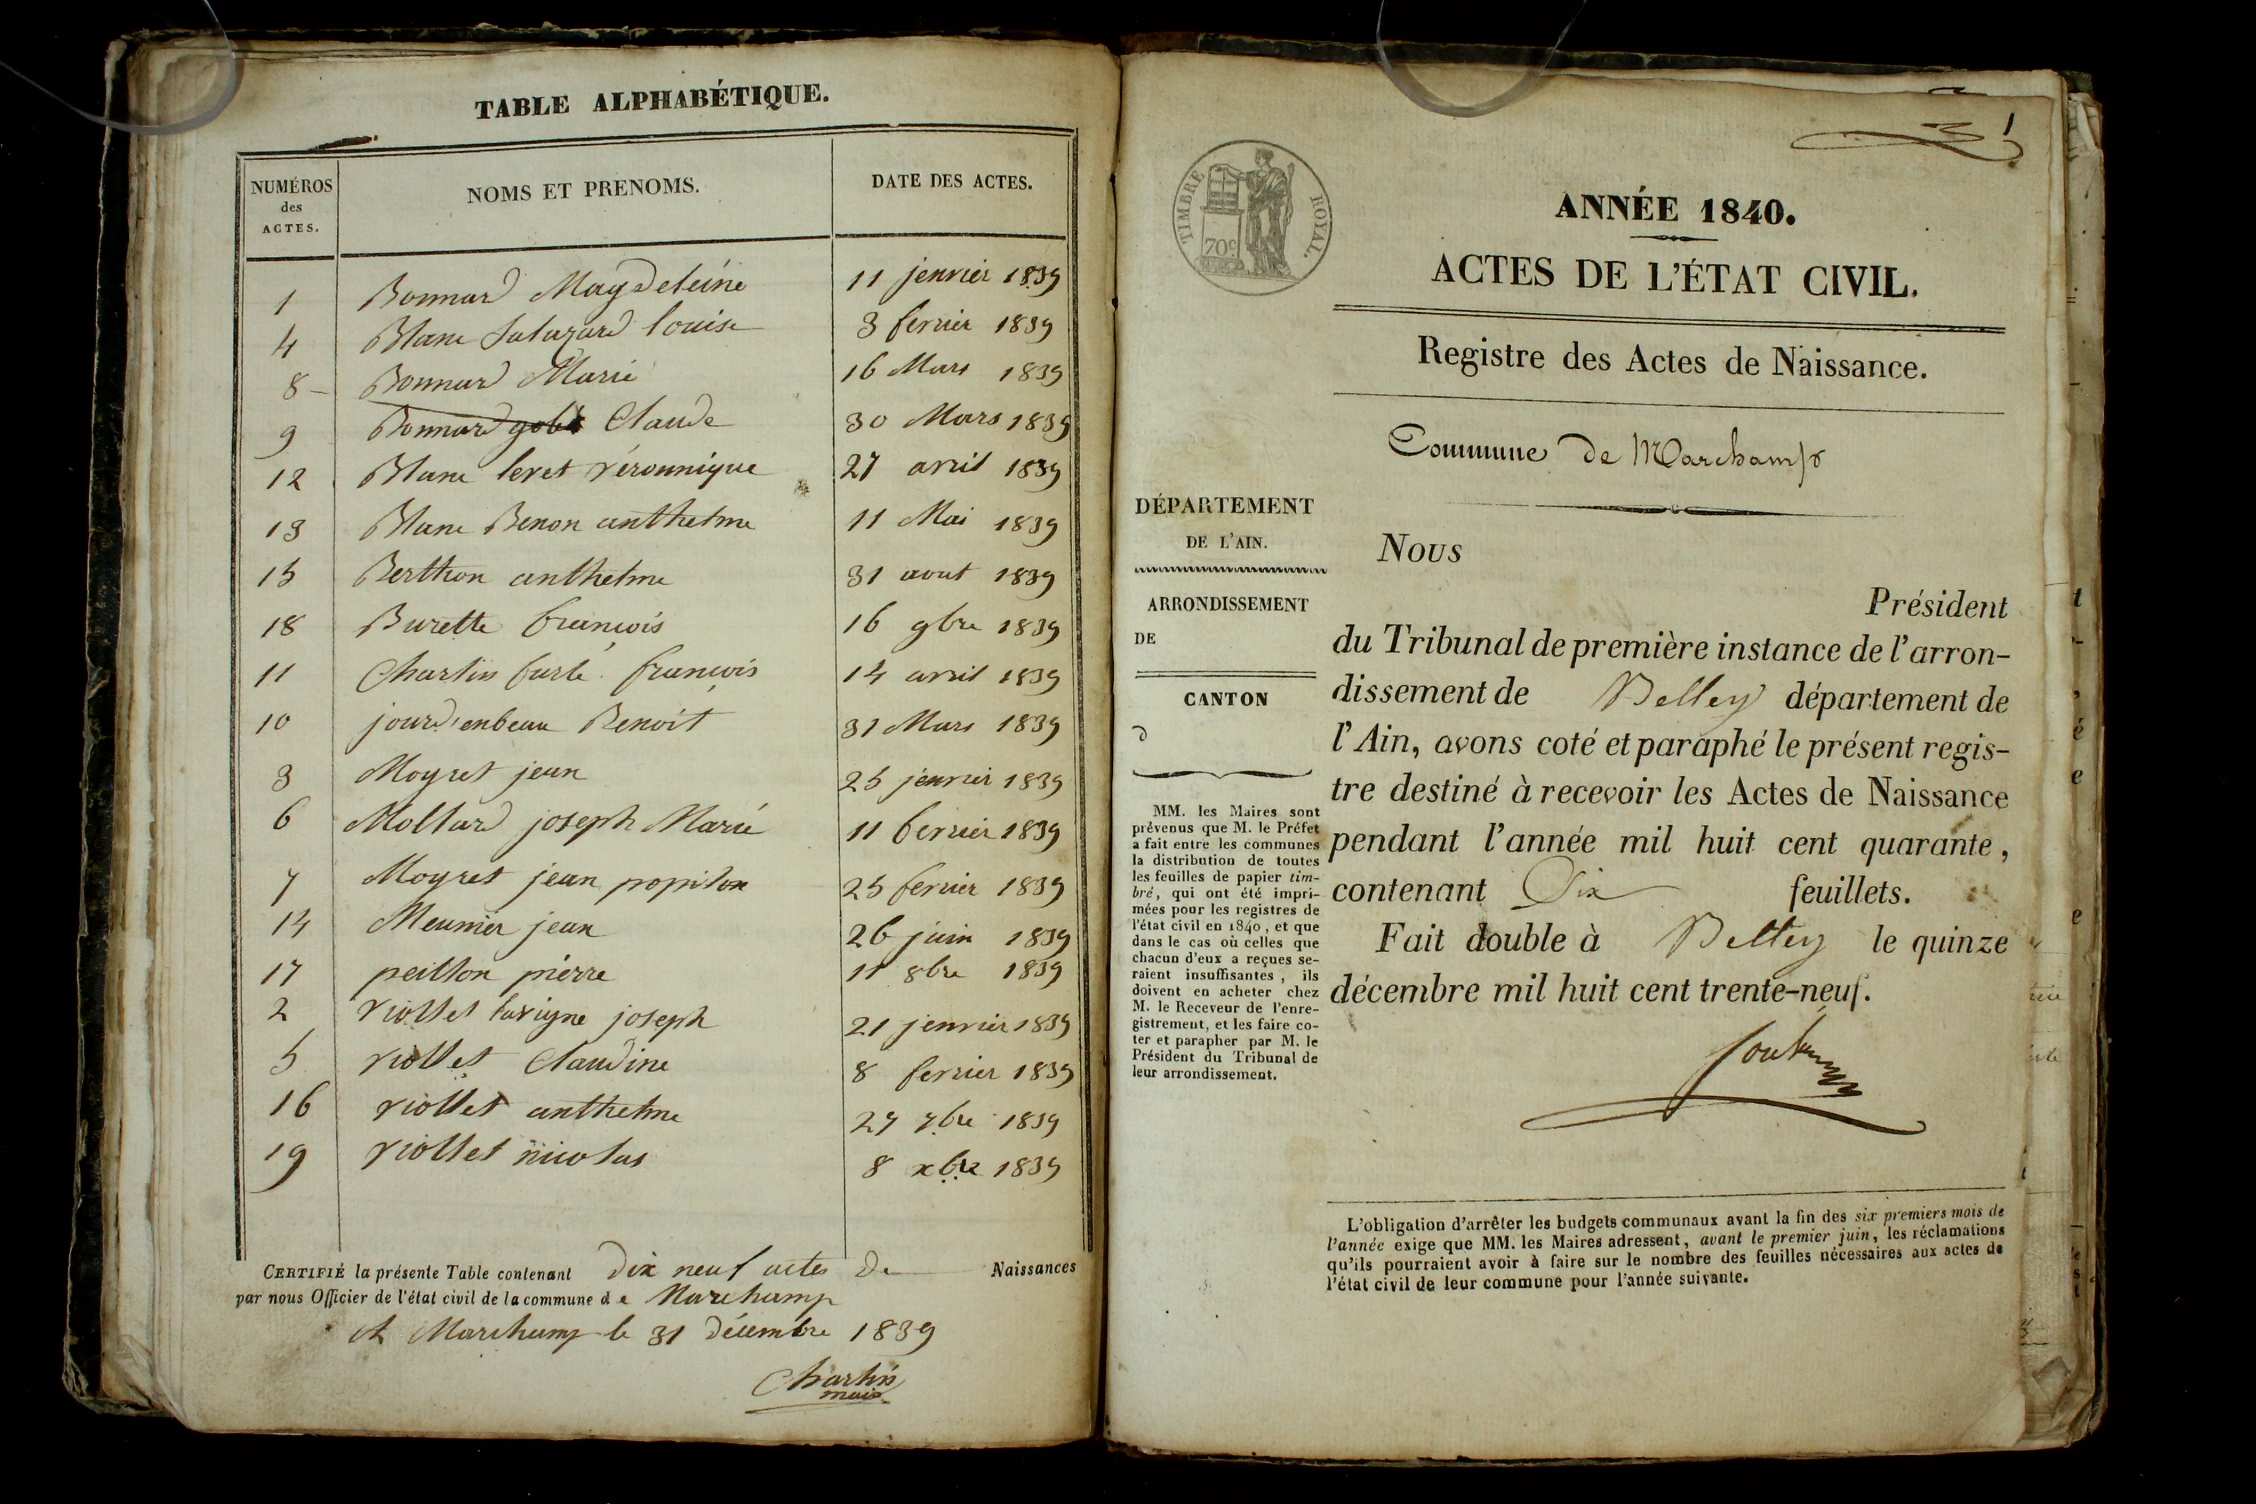 TABLE ALPHABÉTIQUE.
NUMÉROS des ACTES. NOMS ET PRENOMS. DATE DES ACTES.
1 Bonnard Magdeleine 11 jenvier 1839
4 Blanc Salazard louise 3 fevrier 1839
8 - Bonnard Marie 16 Mars 1839
9 Bonnard Claude 30 Mars 1839
12 Blanc levet véronnique 27 avril 1839
13 Blanc Benon anthelme 11 Mai 1839
15 Berthon anthelme 31 aout 1839
18 Burette francois 16 9bre 1839
11 Charlin furlé francois 14 avril 1839
10 jourd'enbeau Benoit 31 Mars 1839
3 Moyret jean 25 jenvier 1839
6 Mollard joseph Marie 11 fevrier 1839
7 Moyret jean popilon 25 fevrier 1839
14 Meunier jean 26 juin 1839
17 peillon pierre 11 8bre 1839
2 viollet lavigne joseph 21 jenvier 1839
5 viollet Claudine 8 fevrier 1839
16 viollet anthelme 27 7bre 1839
19 viollet nicolas 8 xbre 1839
CERTIFIÉ la présente Table contenant dix neuf actes de Naissances
par nous Officier de l'état civil de la commune de Marchamp
A Marchamp le 31 décembre 1839
Charlin
maire
1
TIMBRE ROYAL.
70c
ANNÉE 1840.
ACTES DE L'ÉTAT CIVIL.
Registre des Actes de Naissance.
Commune de Marchamp
DÉPARTEMENT
DE L'AIN.
ARRONDISSEMENT
DE
CANTON
d
MM. les Maires sont
prévenus que M. le Préfet
a fait entre les communes
la distribution de toutes
les feuilles de papier tim-
bré, qui ont été impri-
mées pour les registres de
l'état civil en 1840, et que
dans le cas où celles que
chacun d'eux a reçues se-
raient insuffisantes, ils
doivent en acheter chez
M. le Receveur de l'enre-
gistrement, et les faire co-
ter et parapher par M. le
Président du Tribunal de
leur arrondissement.
Nous
Président
du Tribunal de première instance de l'arron-
dissement de Belley département de
l'Ain, avons coté et paraphé le présent regis-
tre destiné à recevoir les Actes de Naissance
pendant l'année mil huit cent quarante,
contenant Six feuillets.
Fait double à Belley le quinze
décembre mil huit cent trente-neuf.
L'obligation d'arrêter les budgets communaux avant la fin des six premiers mois de
l'année exige que MM. les Maires adressent, avant le premier juin, les réclamations
qu'ils pourraient avoir à faire sur le nombre des feuilles nécessaires aux actes de
l'état civil de leur commune pour l'année suivante.